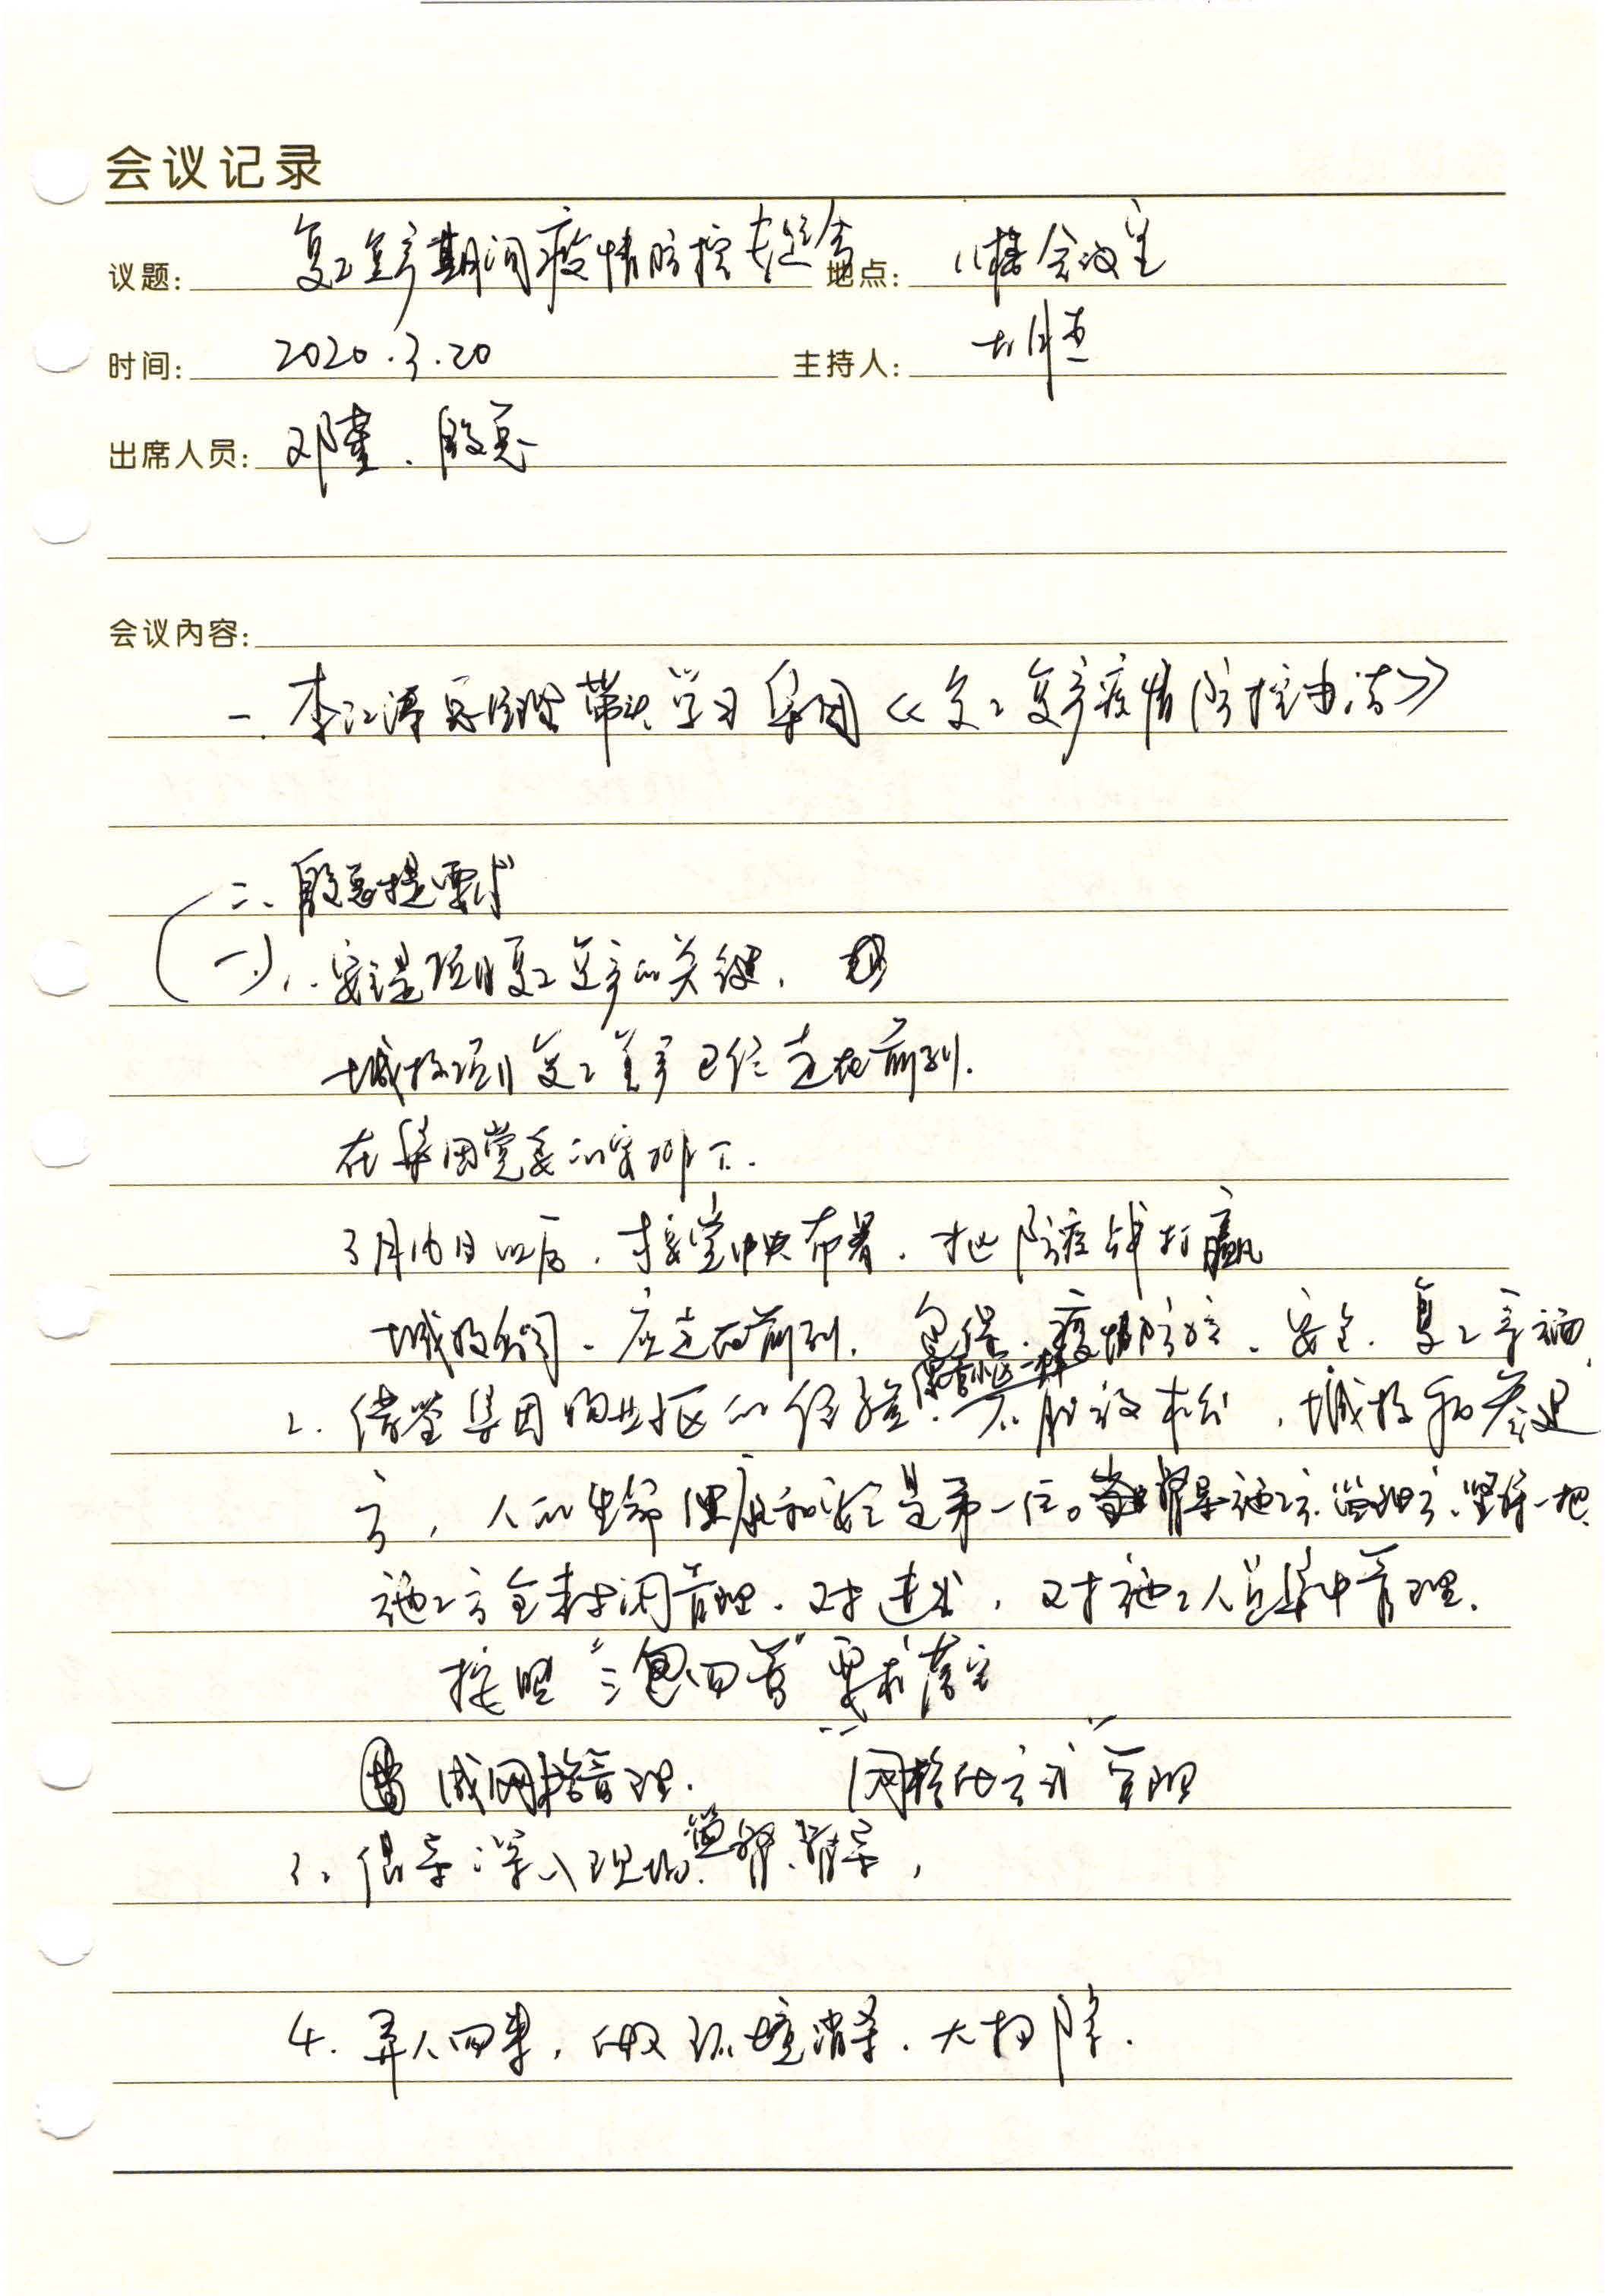 会议记录
议题: 复工复产期间疫情防控专题会 地点: 八楼会议室
时间: 2020.3.20 主持人:
出席人员: 邓瑾、殷总
会议内容:
一、李江涛总经理带头学习集团《复工复产疫情防控办法》
二、殷总提要求
(一)1、安全是项目复工复产的关键,
城投项目复工复产已经走在前列.
在集团党委的安排下.
3月16日以后,按党中央布署,把防疫战打赢
城投公司、应走在前列. 包保、疫情防控、安全、复工幸福
像管小区一样
2. 借鉴集团物业小区的经验. 不能放松,城投和参建
方,人的生命健康和安全是第一位。督导施工方、监理方、坚持一把
施工方全封闭管理、对进出,对施工人员集中管理.
按照“三包四管”要求落实
成网格管理. “网格化方式”管理
3. 领导深入现场.监督、督导,
4. 弄人回来,做环境消杀、大扫除.